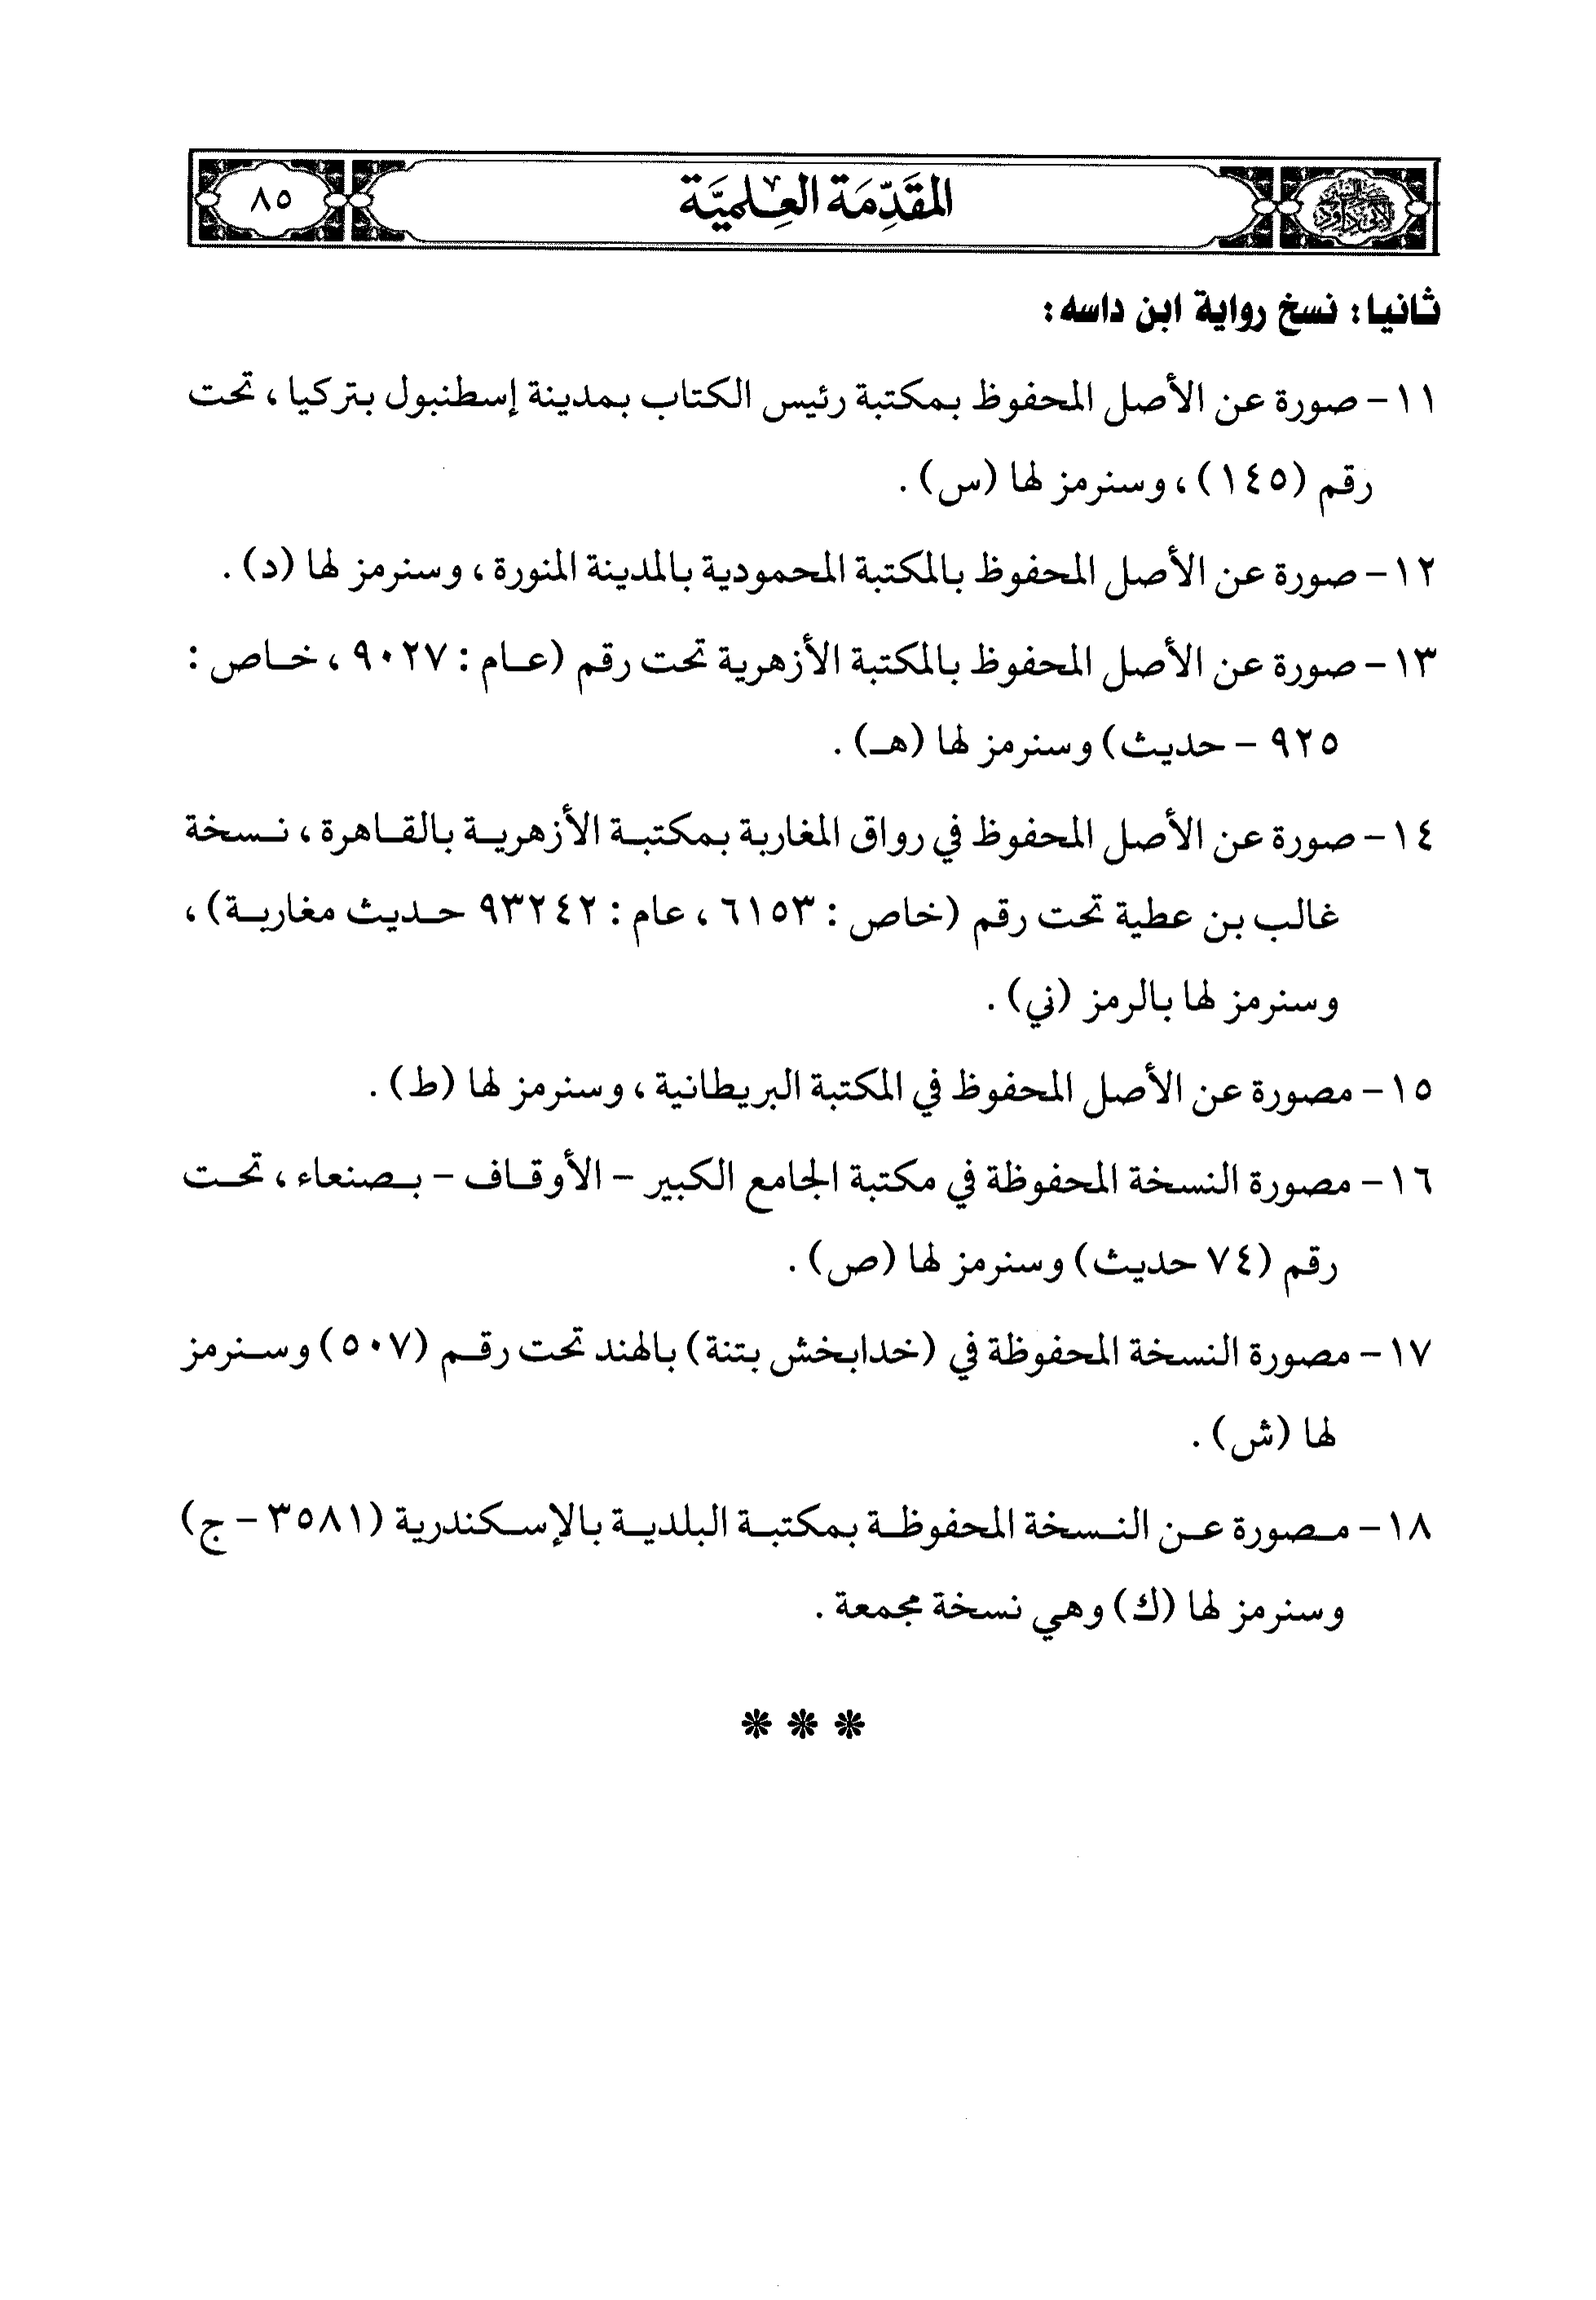 السنن لأبي داود
المقَدِّمَة العِلميَّة
٨٥
ثانيا: نسخ رواية ابن داسه:
١١- صورة عن الأصل المحفوظ بمكتبة رئيس الكتاب بمدينة إسطنبول بتركيا، تحت
رقم (١٤٥)، وسنرمز لها (س).
١٢- صورة عن الأصل المحفوظ بالمكتبة المحمودية بالمدينة المنورة، وسنرمز لها (د).
١٣- صورة عن الأصل المحفوظ بالمكتبة الأزهرية تحت رقم (عام: ٩٠٢٧، خاص:
٩٢٥ - حديث) وسنرمز لها (هـ).
١٤- صورة عن الأصل المحفوظ في رواق المغاربة بمكتبة الأزهرية بالقاهرة، نسخة
غالب بن عطية تحت رقم (خاص: ٦١٥٣، عام: ٩٣٢٤٢ حديث مغاربة)،
وسنرمز لها بالرمز (ني).
١٥- مصورة عن الأصل المحفوظ في المكتبة البريطانية، وسنرمز لها (ط).
١٦- مصورة النسخة المحفوظة في مكتبة الجامع الكبير - الأوقاف - بصنعاء، تحت
رقم (٧٤ حديث) وسنرمز لها (ص).
١٧- مصورة النسخة المحفوظة في (خدابخش بتنة) بالهند تحت رقم (٥٠٧) وسنرمز
لها (ش).
١٨- مصورة عن النسخة المحفوظة بمكتبة البلدية بالإسكندرية (٣٥٨١ - ج)
وسنرمز لها (ك) وهي نسخة مجمعة.
* * *